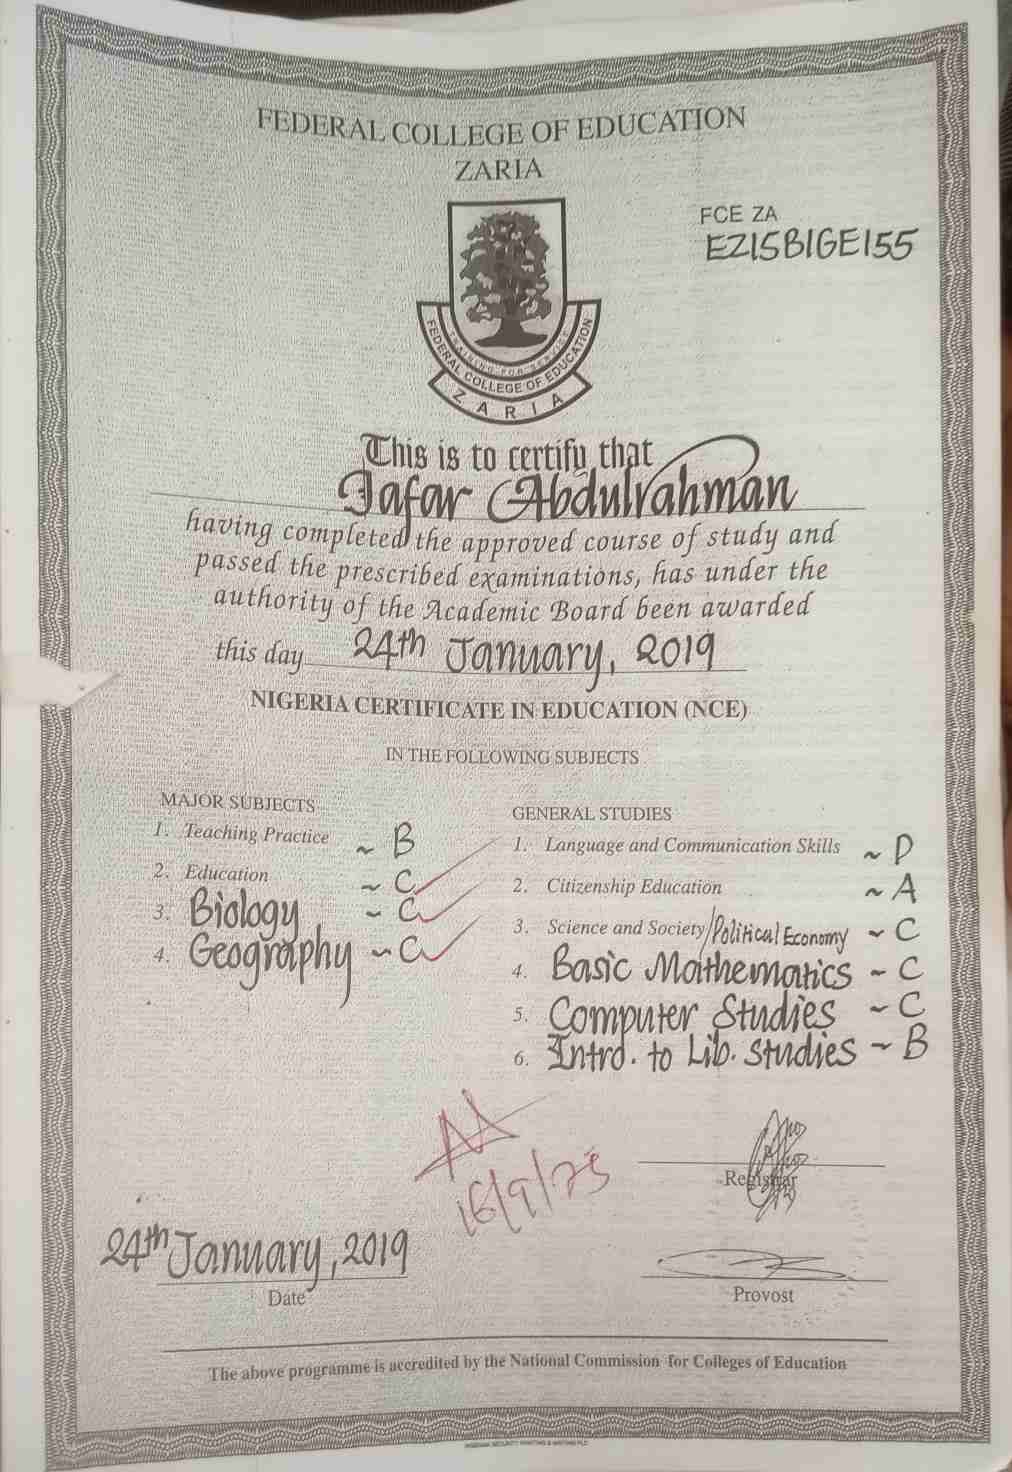 FEDERAL COLLEGE OF EDUCATION
ZARIA
FCE ZA
EZ15BIGE155
TRAINING FOR SERVICE
FEDERAL COLLEGE OF EDUCATION
ZARIA
This is to certify that
Jafar Abdulrahman
having completed the approved course of study and
passed the prescribed examinations, has under the
authority of the Academic Board been awarded
this day 24th January, 2019
NIGERIA CERTIFICATE IN EDUCATION (NCE)
IN THE FOLLOWING SUBJECTS
MAJOR SUBJECTS
1. Teaching Practice ~ B
2. Education ~ C
3. Biology ~ C
4. Geography ~ C
GENERAL STUDIES
1. Language and Communication Skills ~ D
2. Citizenship Education ~ A
3. Science and Society/Political Economy ~ C
4. Basic Mathematics ~ C
5. Computer Studies ~ C
6. Intro. to Lib. Studies ~ B
16/9/23
Registrar
24th January, 2019
Date
Provost
The above programme is accredited by the National Commission for Colleges of Education